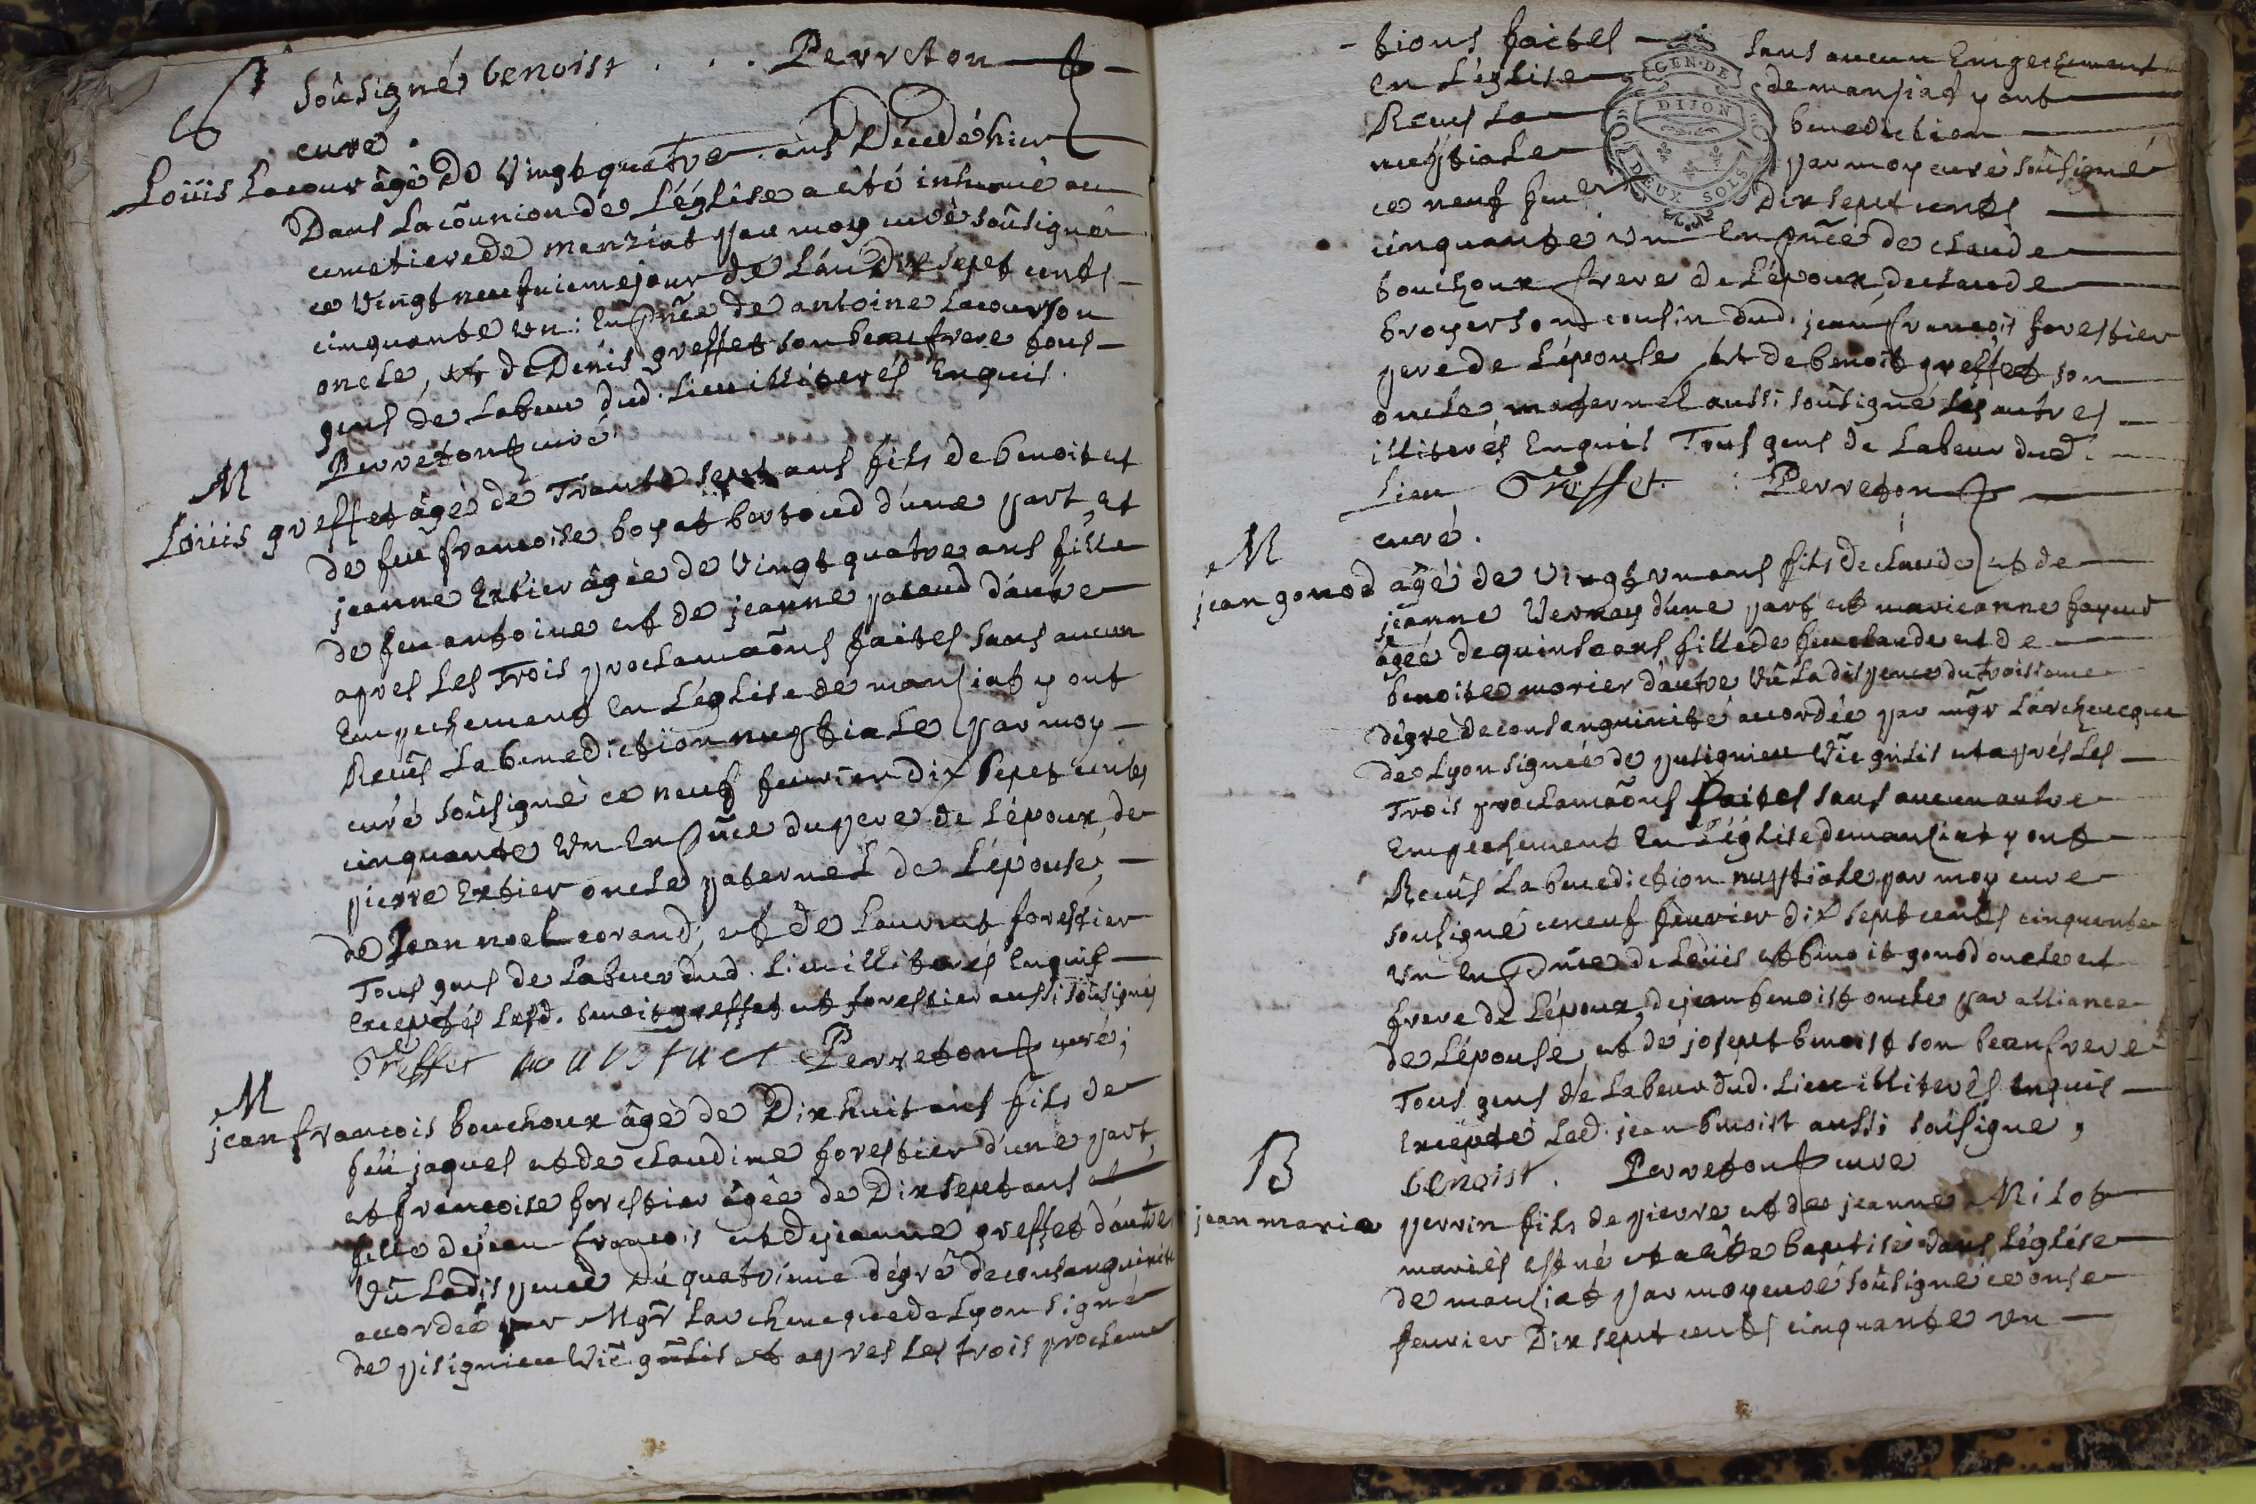 soûsigné benoist . . . Perreton
curé.
Loüis Lacour âgé de vingt quatre ans Décedé hier
Dans La cõunion de L'église a été inhumé au
cimetiere de manziat par moy curé soûsigné
ce vingt neufuiemejour de L'an Dix sept cents
cinquante un : En pñce de antoine Lacour son
oncle, et de Denis greffet son beaufrere tous
gens de Labeur dud. Lieu illiterés Enquis.
Perreton curé
M
Loüis greffet âgé de Trante sept ans fils de benoit et
de feüe francoise boyat bertoud d'une part, et
jeanne Extier âgée de vingt quatre ans fille
de feu antoine et de jeanne pacaud d'autre
apres Les Trois proclamaõns faites sans aucun
Empechement En L'église de manziat y ont
Reçus La benediction nuptiale par moy
curé soûsigné ce neuf fevrier dix sept cents
cinquante un En pñce du pere de L'époux, de
pierre Extier oncle paternel de L'épouse,
de Jean noel corand, et de Laurent forestier
Tous gens de Labeur dud. Lieu illiterés Enquis
Exceptés Lesd. benoit greffet et forestier aussi soûsignés
Greffet Perreton curé;
M
jean francois bouchoux âgé de Dix huit ans fils de
feü jaques et de claudine forestier d'une part,
et francoise forestier âgée de Dix sept ans
fille de jean francois et de jeanne greffet d'autre
Vû La dispence du quatriéme dégré de consanguinité
accordée par Mgr̃ L'archeveque de Lyon signé
de pisignieu Vic̃ gñlis et apres Les trois proclama
-tions faites sans aucun Empechement
en L'église de manziat y ont
Reçus La benediction
nuptiale par moy curé soûsigné
ce neuf fevrier Dix sept cents
GEN. DE
DIJON
DEUX SOLS
cinquante un En pñce de claude
bouchoux frere de L'époux, de claude
broyer son cousin dud. jean francois forestier
pere de L'épouse et de benoit greffet son
oncle maternel aussi soûsigné Les autres
illiterés Enquis Tous gens de Labeur dud.
Lieu Greffet : Perreton
curé.
M
jean gonod âgé de vingt un ans fils de claude et de
jeanne Vernay d'une part et marieanne fayend
âgée de quinse ans fille de feu claude et de
benoite morier d'autre Vû La dispence du troisieme
dégré de consanguinité accordée par mgr̃ L'archeveque
de Lyon signée de pisignieu Vic gñlis et aprés Les
Trois proclamaõns faites sans aucun autre
Empechement En L'église de manziat y ont
Reçus La benediction nuptiale par moy curé
sousigné ce neuf fevrier dix sept cents cinquante
un En pñce de Loüis et benoit gonod oncle et
frere de L'époux, de jean benoist oncle par alliance
de L'épouse, et de joseph benoist son beaufrere
Tous gens de Labeur dud. Lieu illiterés Enquis
Excepté Led. jean benoist aussi soûsigné,
benoist. Perreton curé
B
jean marie perrin fils de pierre et de jeanne Nilot
mariés est né et a été baptisé dans L'église
de manziat par moy curé soûsigné ce onse
fevrier Dix sept cents cinquante un